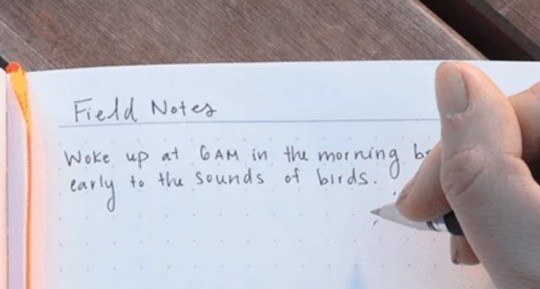 Field Notes
Woke up at 6AM in the morning
early to the sounds of birds.